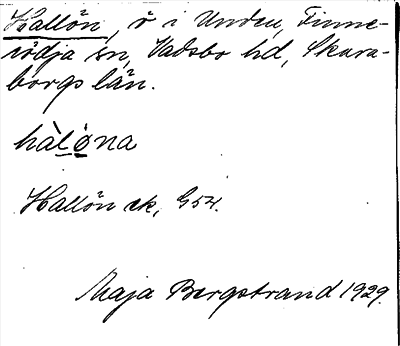 Hallön, ö i Unden, Finne-
rödja sn, Vadsbo hd, Skara-
borgs län.
hàl̠ø̠̀na
Hallön ek, G 54.
Maja Bergstrand 1929.